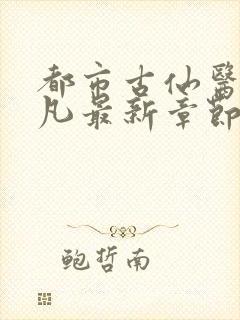 都市古仙醫
凡最新章節
鲍哲南